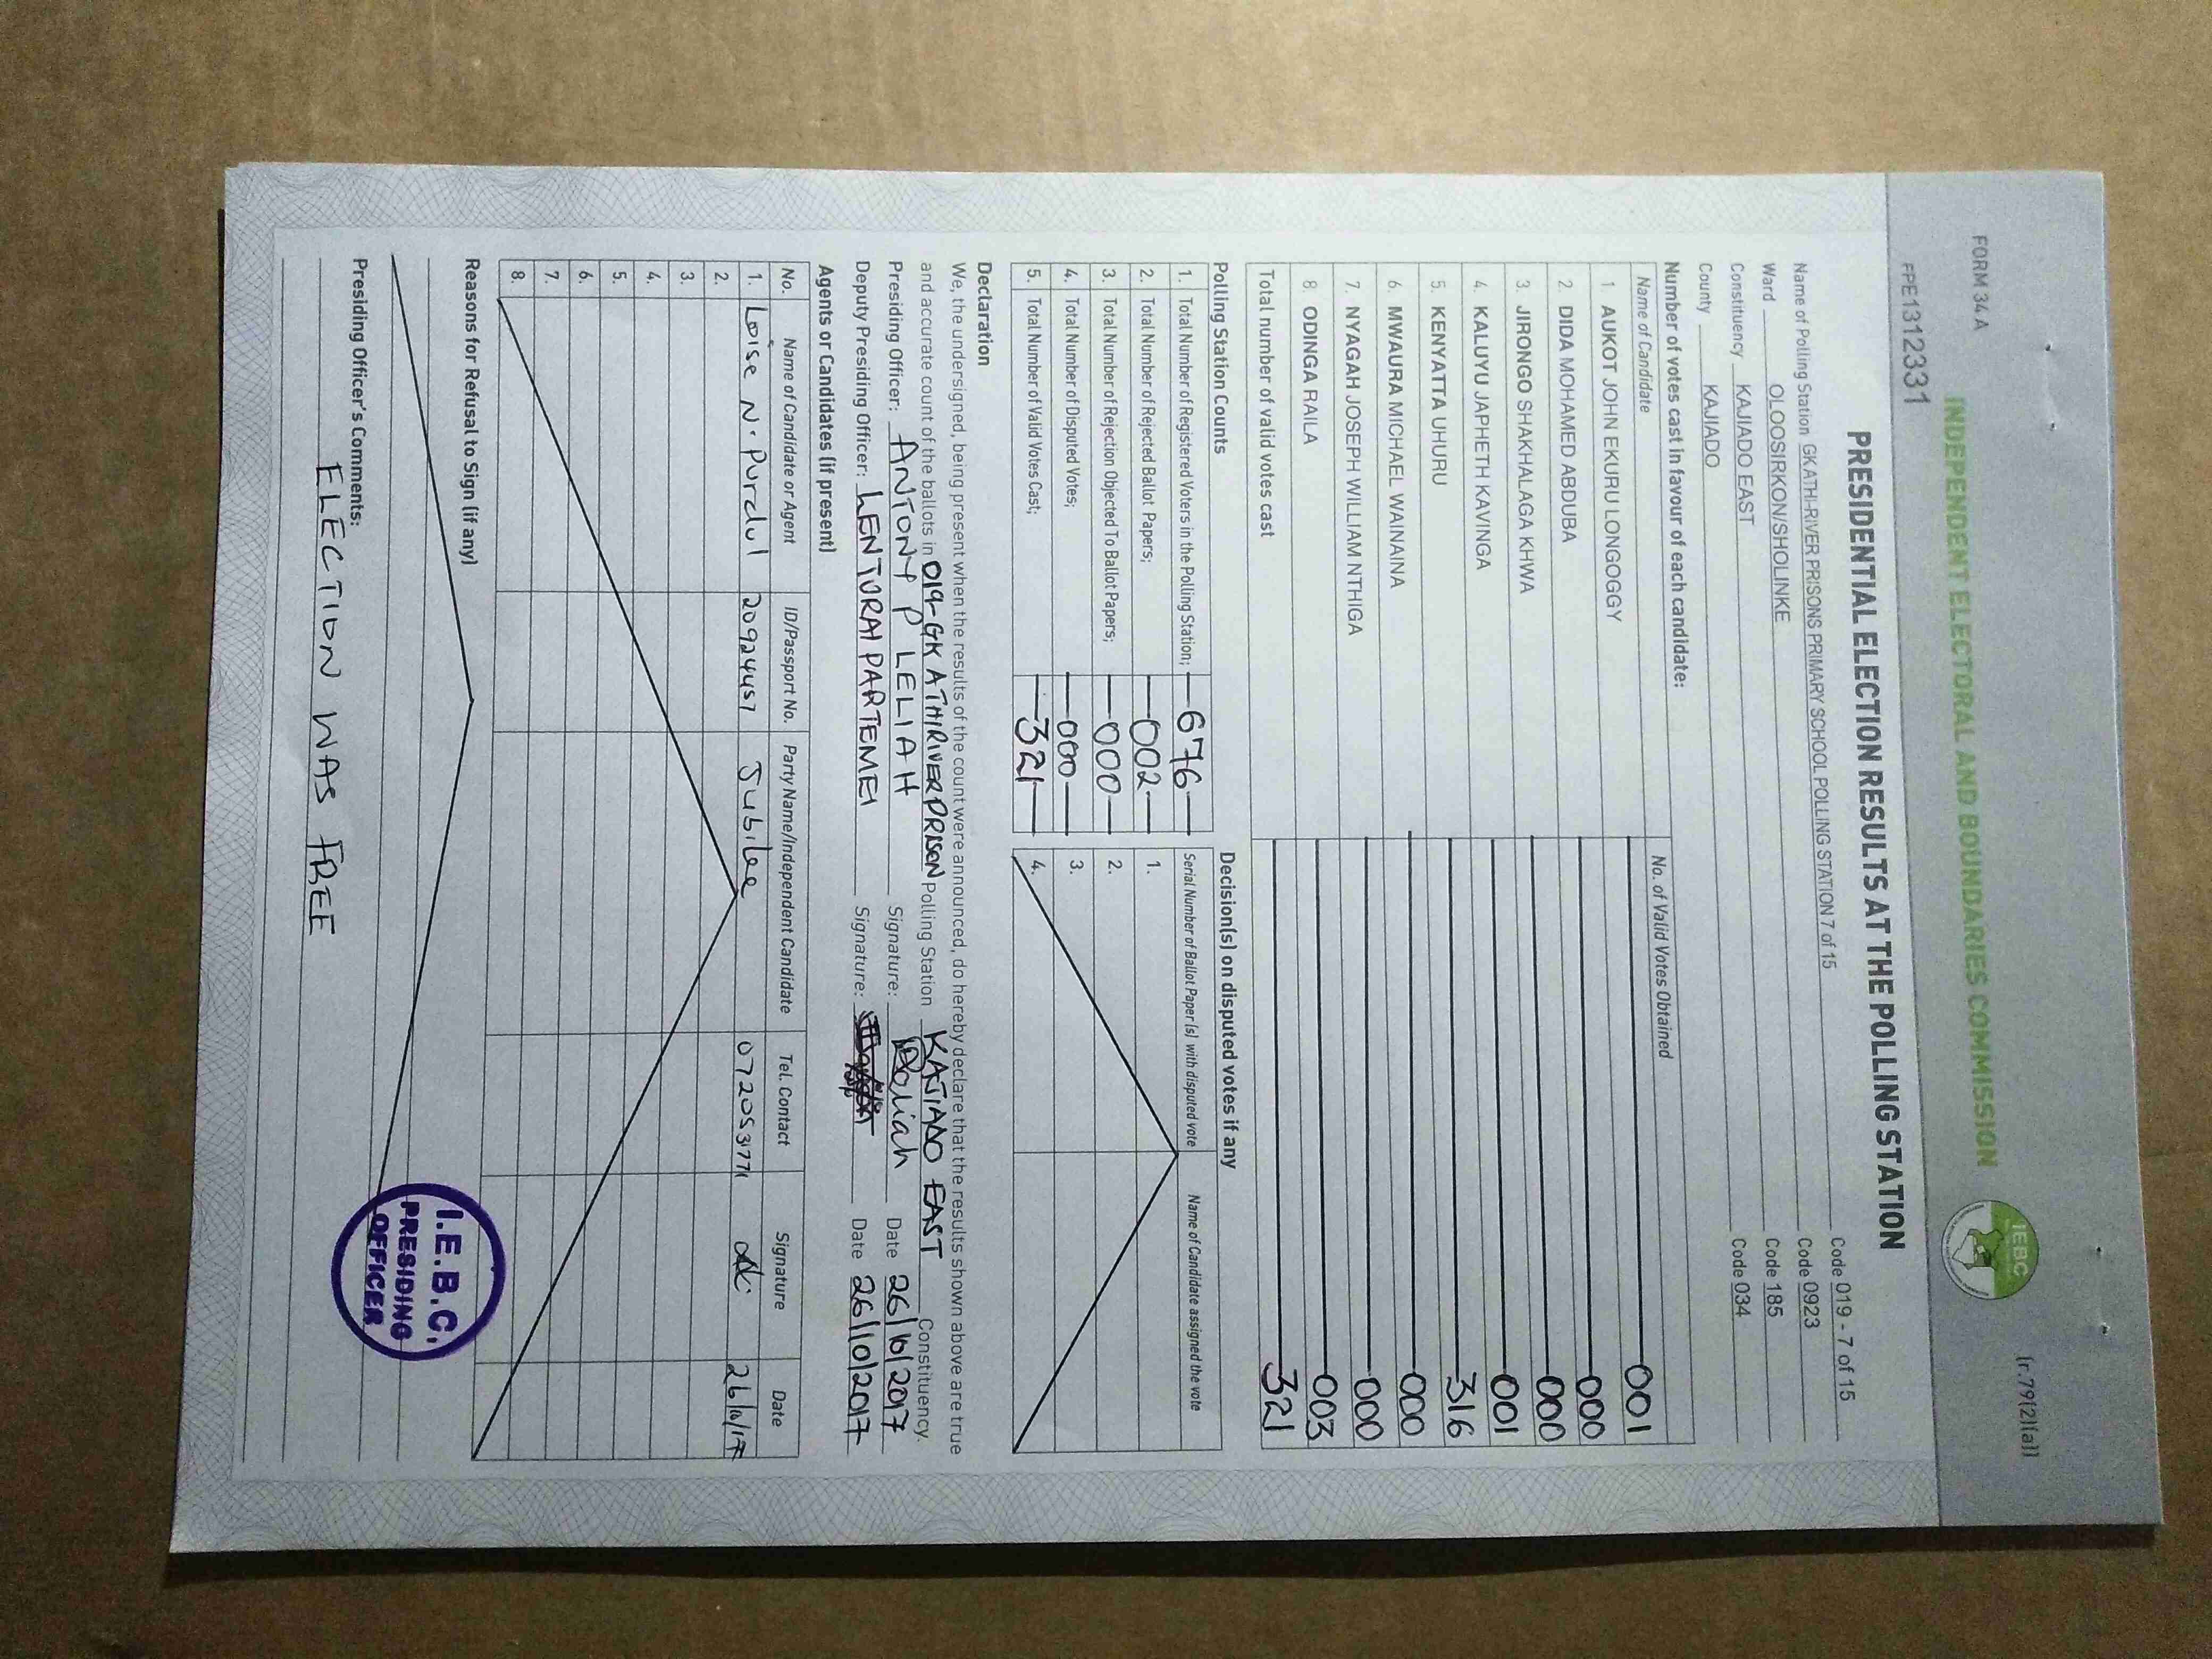 FORM 34 A
(r.79(2)(a))
INDEPENDENT ELECTORAL AND BOUNDARIES COMMISSION
IEBC
FPE1312331
PRESIDENTIAL ELECTION RESULTS AT THE POLLING STATION
Name of Polling Station GK ATHI-RIVER PRISONS PRIMARY SCHOOL POLLING STATION 7 of 15 Code 019 - 7 of 15
Ward OLOOSIRKON/SHOLINKE Code 0923
Constituency KAJIADO EAST Code 185
County KAJIADO Code 034
Number of votes cast in favour of each candidate:
Name of Candidate No. of Valid Votes Obtained
1 AUKOT JOHN EKURU LONGOGGY 001
2. DIDA MOHAMED ABDUBA 000
3. JIRONGO SHAKHALAGA KHWA 000
4. KALUYU JAPHETH KAVINGA 001
5. KENYATTA UHURU 316
6. MWAURA MICHAEL WAINAINA 000
7. NYAGAH JOSEPH WILLIAM NTHIGA 000
8. ODINGA RAILA 003
Total number of valid votes cast 321
Polling Station Counts
1. Total Number of Registered Voters in the Polling Station; 676
2. Total Number of Rejected Ballot Papers; 002
3. Total Number of Rejection Objected To Ballot Papers; 000
4. Total Number of Disputed Votes; 000
5. Total Number of Valid Votes Cast; 321
Decision(s) on disputed votes if any
Serial Number of Ballot Paper (s) with disputed vote Name of Candidate assigned the vote
1.
2.
3.
4.
Declaration
We, the undersigned, being present when the results of the count were announced, do hereby declare that the results shown above are true
and accurate count of the ballots in 019-GK ATHIRIVER PRISON Polling Station KAJIADO EAST Constituency.
Presiding Officer: ANTONY P LELIAH Signature: Date 26/10/2017
Deputy Presiding Officer: LENTURAI PARTEMEI Signature: Date 26/10/2017
Agents or Candidates (if present)
No. Name of Candidate or Agent ID/Passport No. Party Name/Independent Candidate Tel. Contact Signature Date
1. Loise N. Purdul 20924457 Jubilee 0720531771 26/10/17
2.
3.
4.
5.
6.
7.
8.
Reasons for Refusal to Sign (if any)
Presiding Officer's Comments:
ELECTION WAS FREE
I.E.B.C.
PRESIDING
OFFICER